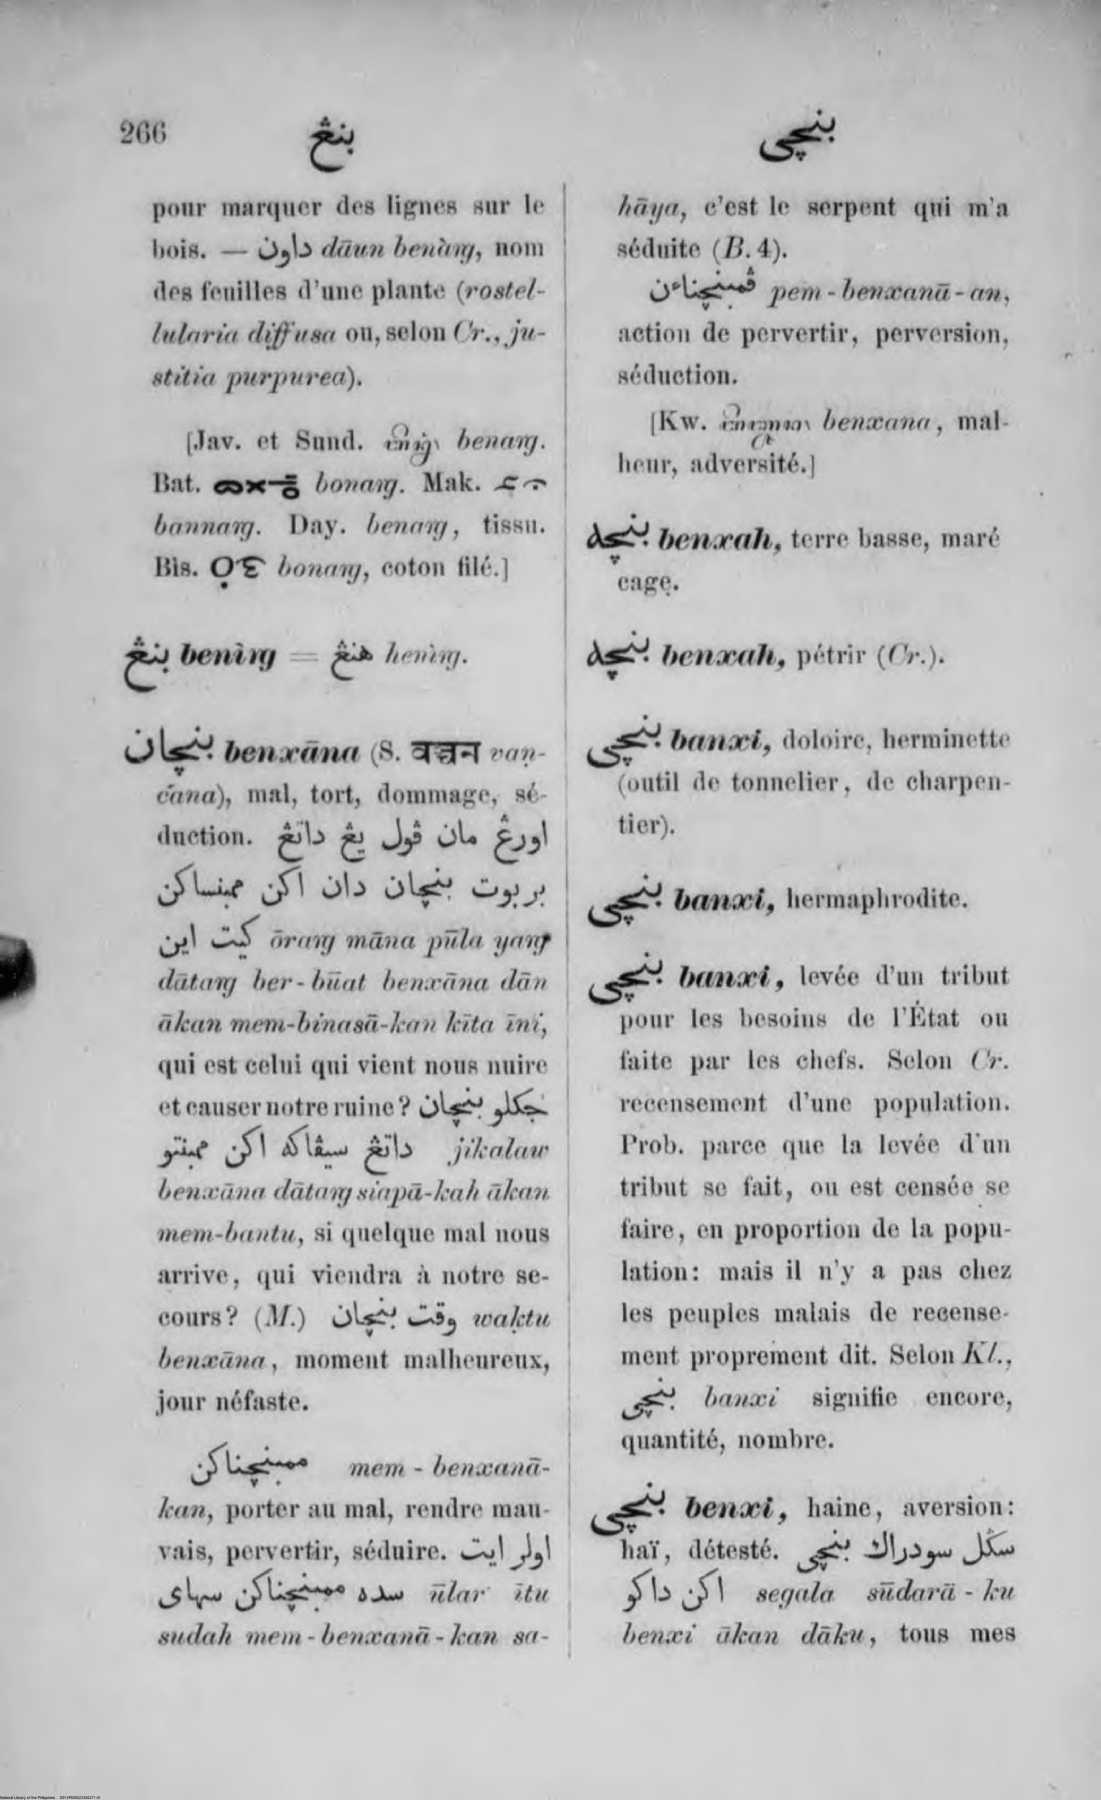 266
بنڠ
بنچي
pour marquer des lignes sur le
bois. — داون dāun benàng, nom
des feuilles d'une plante (rostel-
lularia diffusa ou, selon Cr., ju-
stitia purpurea).
[Jav. et Sund. benang.
Bat. bonang. Mak.
bannang. Day. benang, tissu.
Bis. bonang, coton filé.]
بنڠ benìng = هنڠ henìng.
بنچان benxāna (S. वञ्चन vaṇ-
ćana), mal, tort, dommage, sé-
duction. اورڠ مان ڤول يڠ داتڠ
بربوت بنچان دان اكن ممبنساكن
كيت اين ōrang māna pūla yang
dātang ber-būat benxāna dān
ākan mem-binasā-kan kīta īni,
qui est celui qui vient nous nuire
et causer notre ruine? جكلو بنچان
داتڠ سيڤاكه اكن ممبنتو jikalaw
benxāna dātang siapā-kah ākan
mem-bantu, si quelque mal nous
arrive, qui viendra à notre se-
cours? (M.) وقت بنچان waḳtu
benxāna, moment malheureux,
jour néfaste.
ممبنچناكن mem-benxanā-
kan, porter au mal, rendre mau-
vais, pervertir, séduire. اولر ايت
سده ممبنچناكن سهاي ūlar ītu
sudah mem-benxanā-kan sa-
hāya, c'est le serpent qui m'a
séduite (B. 4).
ڤمبنچناءن pem-benxanā-an,
action de pervertir, perversion,
séduction.
[Kw. benxana, mal-
heur, adversité.]
بنچه benxah, terre basse, maré
cage.
بنچه benxah, pétrir (Cr.).
بنچي banxi, doloire, herminette
(outil de tonnelier, de charpen-
tier).
بنچي banxi, hermaphrodite.
بنچي banxi, levée d'un tribut
pour les besoins de l'État ou
faite par les chefs. Selon Cr.
recensement d'une population.
Prob. parce que la levée d'un
tribut se fait, ou est censée se
faire, en proportion de la popu-
lation: mais il n'y a pas chez
les peuples malais de recense-
ment proprement dit. Selon Kl.,
بنچي banxi signifie encore,
quantité, nombre.
بنچي benxi, haine, aversion:
haï, détesté. سكل سودراك بنچي
اكن داكو segala sūdarā-ku
benxi ākan dāku, tous mes